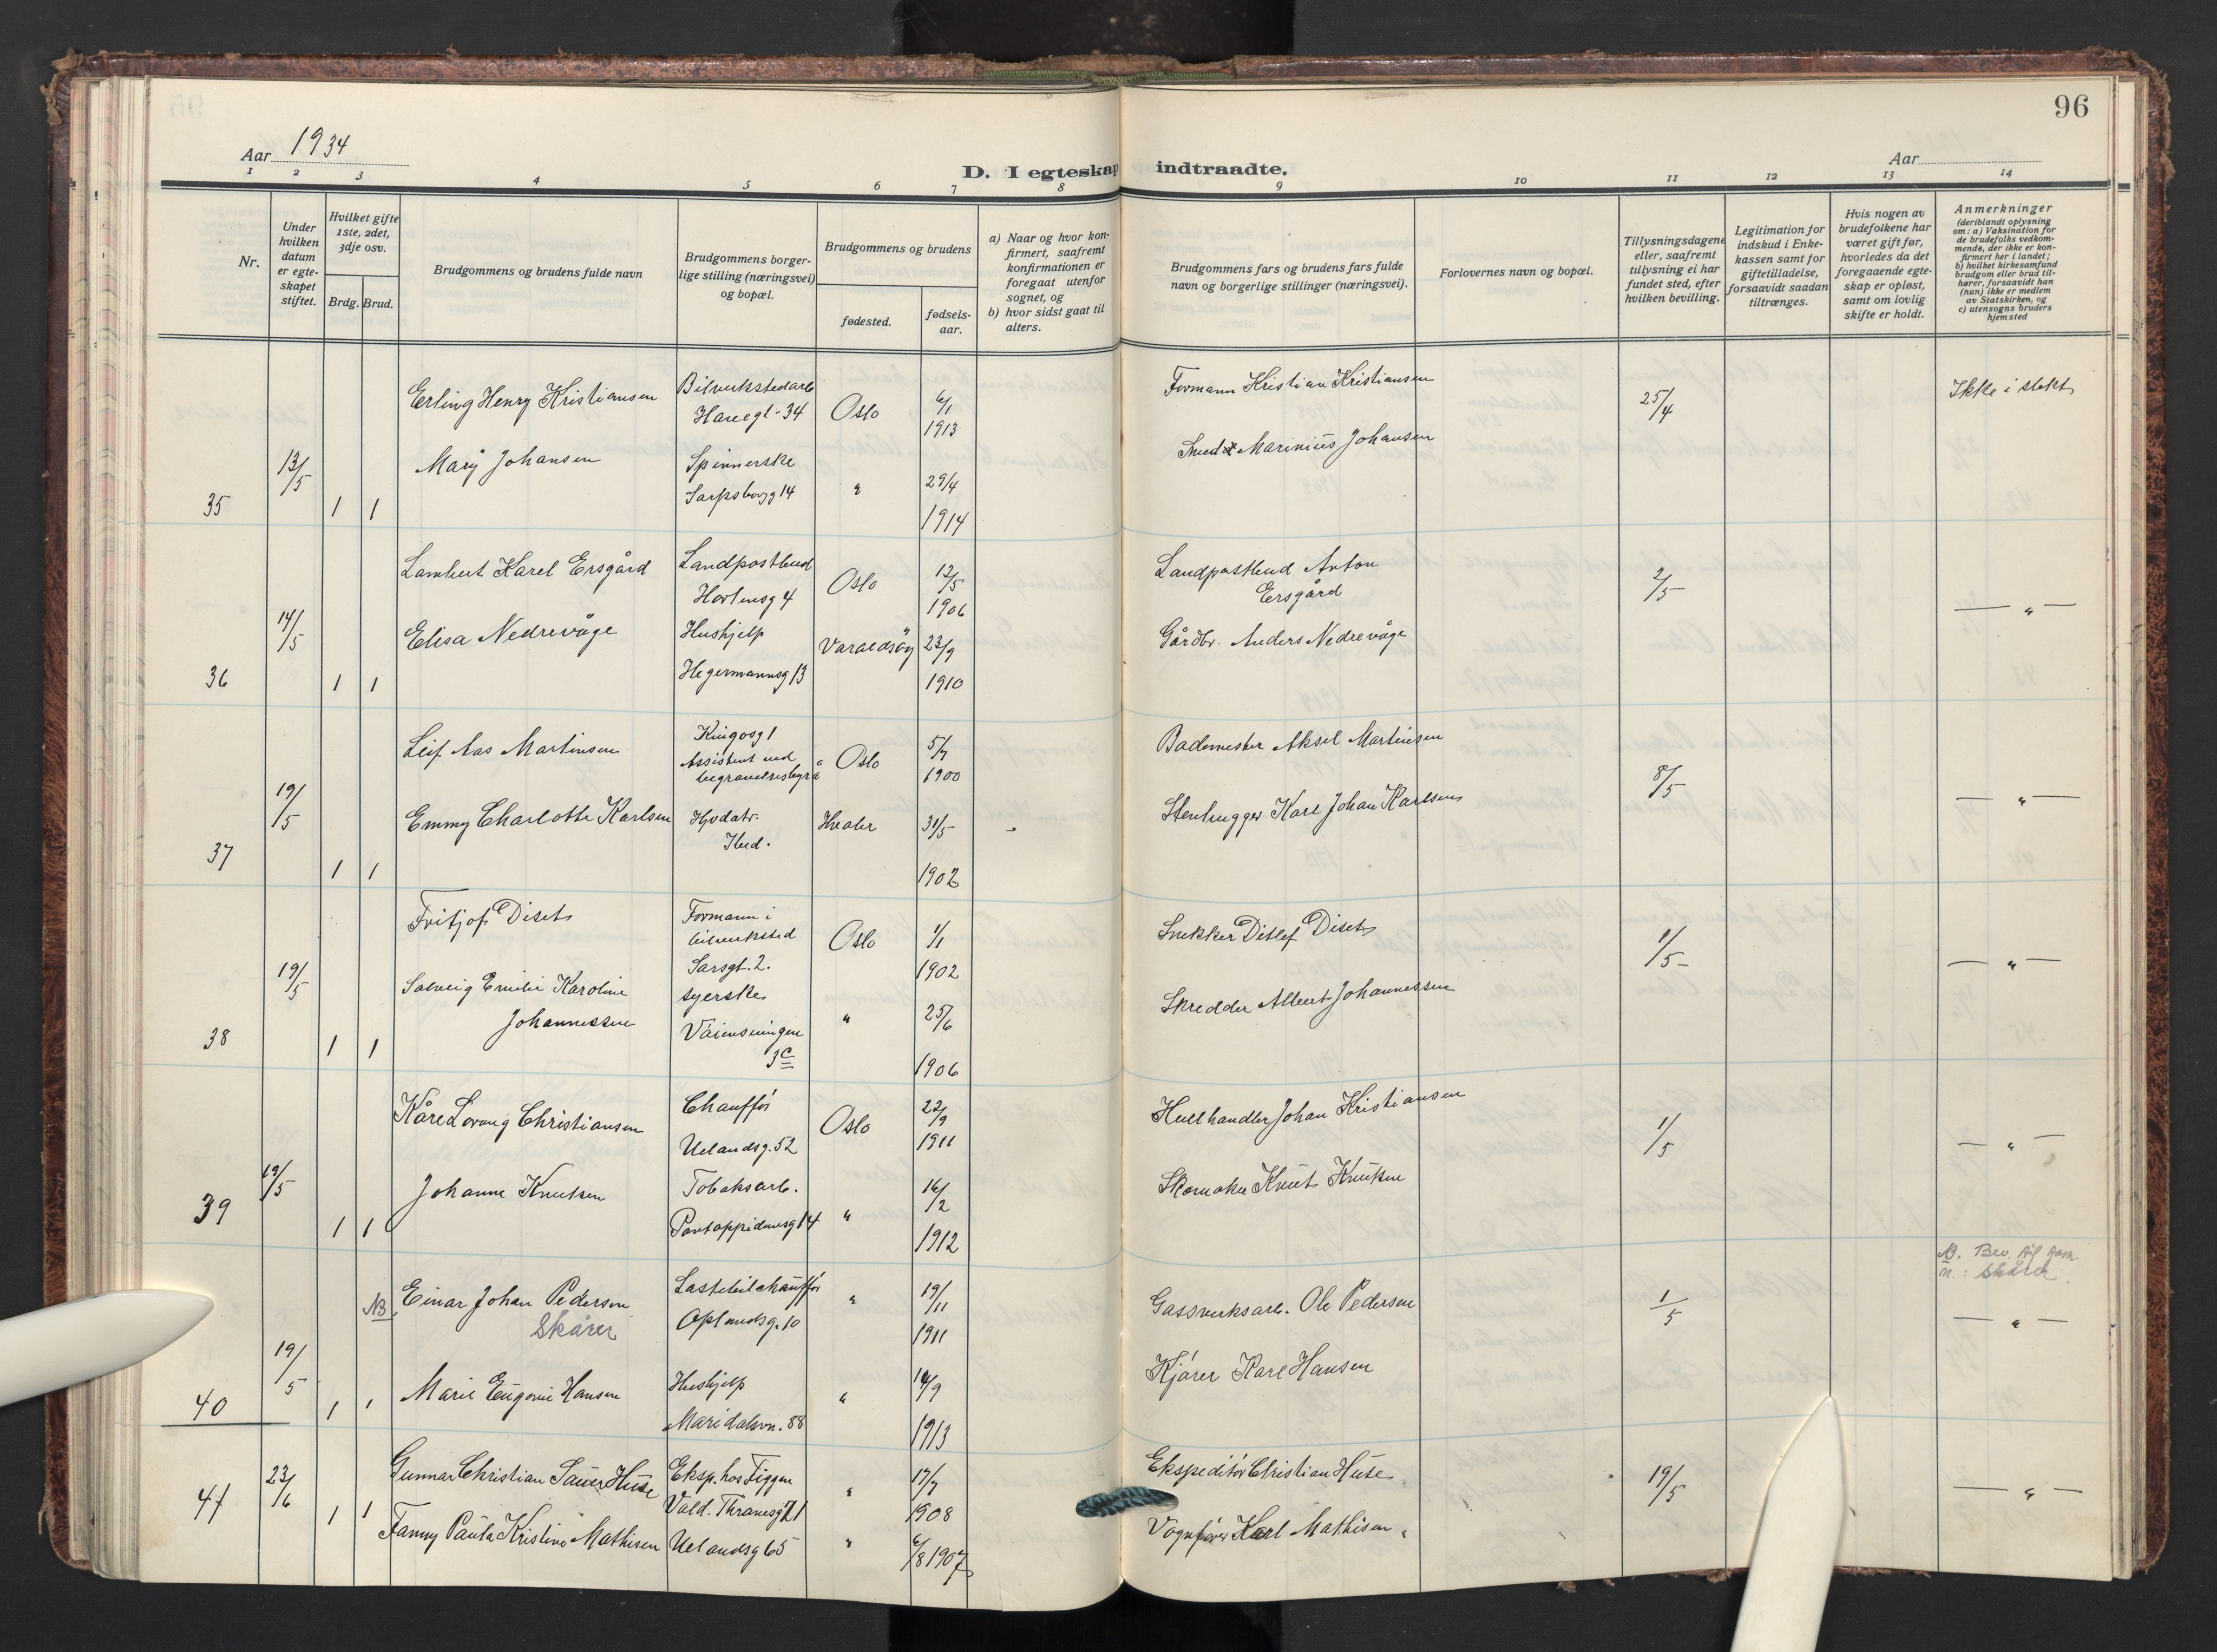 96
Aar 1934
Aar
D. I egteskap indtraadte.
1 2 3 4 5 6 7 8 9 10 11 12 13 14
Nr.
Under hvilken datum er egteskapet stiftet.
Hvilket gifte 1ste, 2det, 3dje osv.
Brdg. Brud.
Brudgommens og brudens fulde navn
Brudgommens borgerlige stilling (næringsvei) og bopæl.
Brudgommens og brudens
fødested.
fødselsaar.
a) Naar og hvor konfirmert, saafremt konfirmationen er foregaat utenfor sognet, og
b) hvor sidst gaat til alters.
Brudgommens fars og brudens fars fulde navn og borgerlige stillinger (næringsvei).
Forlovernes navn og bopæl.
Tillysningsdagene eller, saafremt tillysning ei har fundet sted, efter hvilken bevilling.
Legitimation for indskud i Enkekassen samt for giftetilladelse, forsaavidt saadan tiltrænges.
Hvis nogen av brudefolkene har været gift før, hvorledes da det foregaaende egteskap er opløst, samt om lovlig skifte er holdt.
Anmerkninger
(deriblandt oplysning om: a) Vaksination for de brudefolks vedkommende, der ikke er konfirmert her i landet; b) hvilket kirkesamfund brudgom eller brud tilhører, forsaavidt han (hun) ikke er medlem av Statskirken, og c) utensogns bruders hjemsted
Erling Henry Kristiansen Bilverkstedarb Oslo 6/1 Formann Kristian Kristiansen 25/4 Ikke i slekt
Haregt-34 1913
13/5 Mary Johansen Spinnerske " 29/4 Smed Marinius Johansen
35 1 1 Sarpsborgg 14 1914
Lambert Karel Ersgård Landpostbud Oslo 12/5 Landpostbud Anton Ersgård 2/5 — " —
Hortensg 4 1906
14/5 Elisa Nedrevåge Hushjelp Varaldsøy 23/9 Gårdbr. Anders Nedrevåge
36 1 1 Hegermannsg 13 1910
Leif Aas Martinsen Kingosg 1 Oslo 5/7 Bademester Aksel Martinsen 8/5 — " —
Assistent ved begravelsesbyrå 1900
19/5 Emmy Charlotte Karlsen Hvaler 31/5 Stenhugger Karl Johan Karlsen
37 1 1 1902
Fritjof Diset Formann i bilverksted Oslo 1/1 Snekker Ditlef Diset 1/5 — " —
Sarsgt. 2. 1902
19/5 Solveig Emilie Karoline Johannessen syerske " 25/6 Skredder Albert Johannessen
38 1 1 Våiensvingen 3c 1906
Kåre Lorang Christiansen Chauffør Oslo 22/9 Kullhandler Johan Kristiansen 1/5 — " —
Uelandsg. 52 1911
19/5 Johanne Knutsen Tobaksarb. " 16/2 Skomaker Knut Knutsen
39 1 1 Pontoppidansg 14 1912
NB. Einar Johan Pedersen Lastebilchauffør " 19/11 Gassverksarb. Ole Pedersen 1/5 — " —
NB. Bev. n.: Skårer
Skårer Oplandsg. 10 1911
19/5 Marie Eugenie Hansen Hushjelp " 14/9 Kjører Karl Hansen
40 1 1 Maridalsvn. 88 1913
23/6 Gunnar Christian Sauer Huse Eksp. hos Figgen " 17/7 Ekspeditør Christian Huse 19/5 — " —
41 1 1 Vald. Thranesg 71 1908
Fanny Paula Kristine Mathisen Uelandsg 65 " 6/8 1907 Vognfører Karl Mathisen